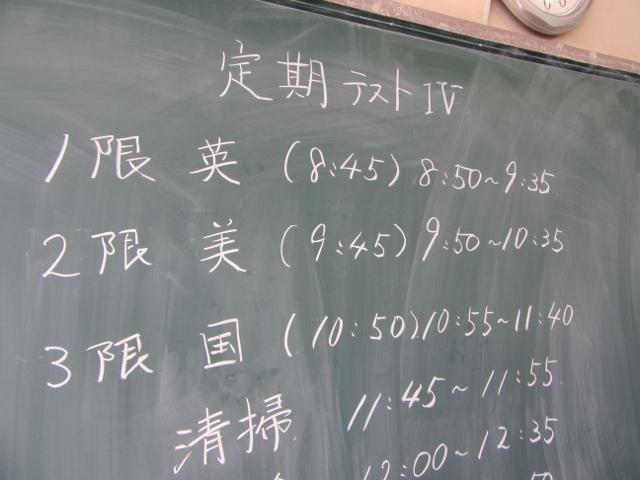 定期テストⅣ
1限 英 (8:45) 8:50~9:35
2限 美 (9:45) 9:50~10:35
3限 国 (10:50) 10:55~11:40
清掃 11:45~11:55
12:00~12:35